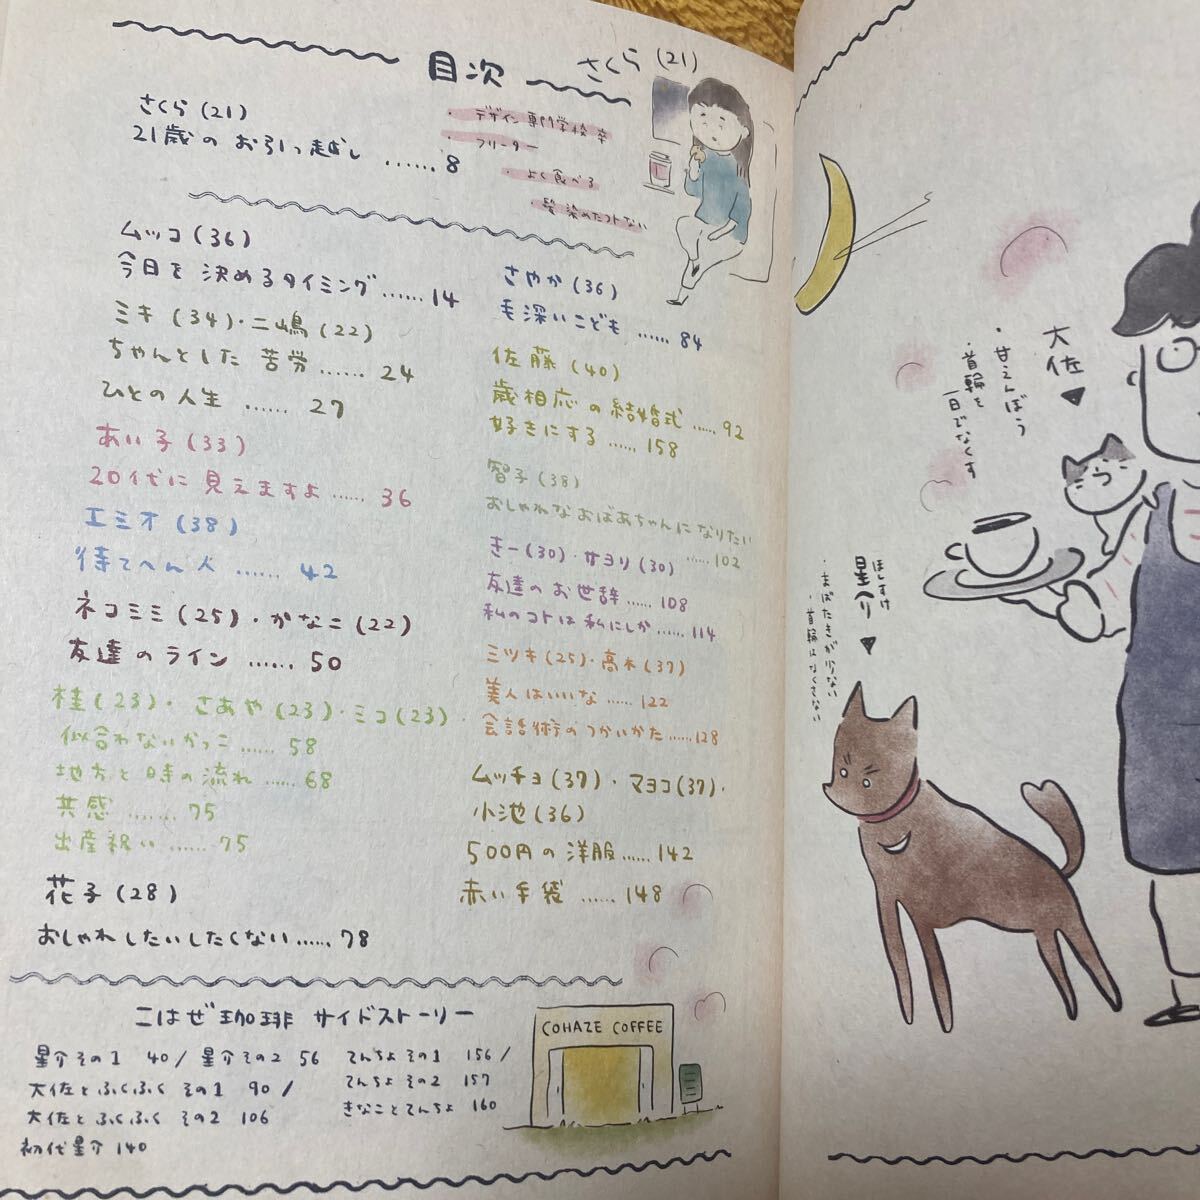 目次
さくら(21)
21歳のお引っ越し ……8
さくら(21)
・デザイン専門学校卒
・フリーター
・よく食べる
・髪染めたコトない
ムツコ(36)
今日を決めるタイミング……14
ミキ(34)・二嶋(22)
ちゃんとした苦労……24
ひとの人生……27
あい子(33)
20代に見えますよ……36
エミオ(38)
待てへん人……42
ネコミミ(25)・かなこ(22)
友達のライン……50
桂(23)・さあや(23)・ミコ(23)・
似合わないかっこ……58
地方と時の流れ……68
共感……75
出産祝い……75
花子(28)
おしゃれしたいしたくない……78
さやか(36)
毛深いこども……84
佐藤(40)
歳相応の結婚式……92
好きにする……158
智子(38)
おしゃれなおばあちゃんになりたい
……102
きー(30)・サヨリ(30)
友達のお世辞……108
私のコトは私にしか……114
ミツキ(25)・高木(37)
美人はいいな……122
会話術のつかいかた……128
ムッチョ(37)・マヨコ(37)・
小池(36)
500円の洋服……142
赤い手袋……148
こはぜ珈琲 サイドストーリー
星介その1 40/星介その2 56
大佐とふくふく その1 90/
大佐とふくふく その2 106
初代星介 140
てんちょ その1 156/
てんちょ その2 157
きなことてんちょ 160
COHAZE COFFEE
大佐
・甘えんぼう
・首輪を
一日でなくす
ほしすけ
星介
・まばたきが少ない
・首輪はなくてない